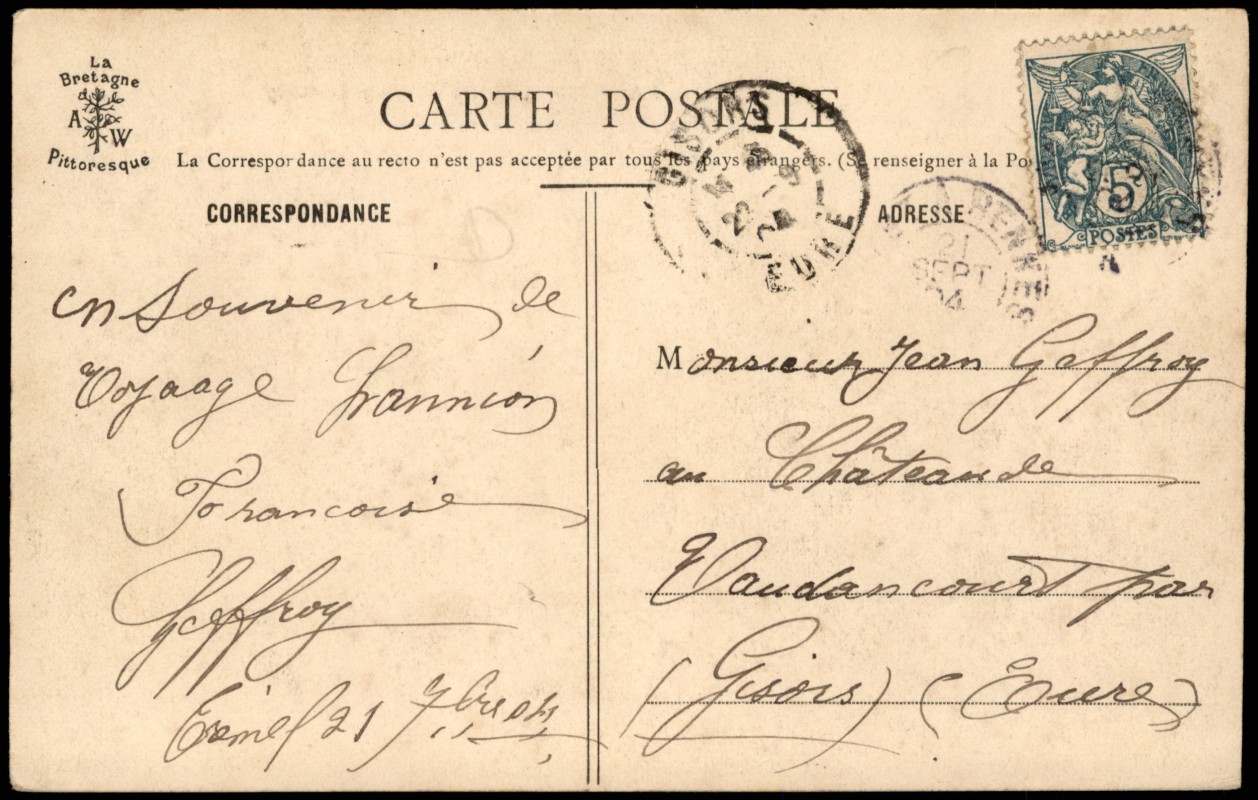 La
Bretagne
A W
Pittoresque
CARTE POSTALE
La Correspondance au recto n'est pas acceptée par tous les pays étrangers. (Se renseigner à la Po
CORRESPONDANCE
ADRESSE
GISORS
EURE
RENNES
21
SEPT
04
5
POSTES
en souvenir de
Voyaage Lannion
Francoise
Geffroy
21 7bre 04
Monsieur Jean Geffroy
au Château de
Vaudancourt par
(Gisors) (Eure)